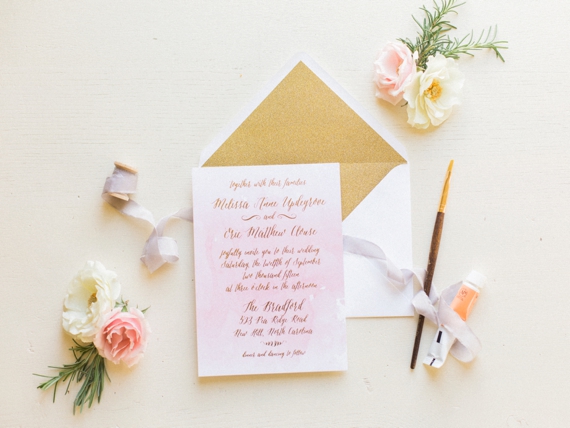 together with their families
Melissa Anne Updegrove
and
Eric Matthew Clouse
joyfully invite you to their wedding
Saturday, the twelfth of September
two thousand fifteen
at three o'clock in the afternoon
The Bradford
Pea Ridge Road
New Hill, North Carolina
dinner and dancing to follow